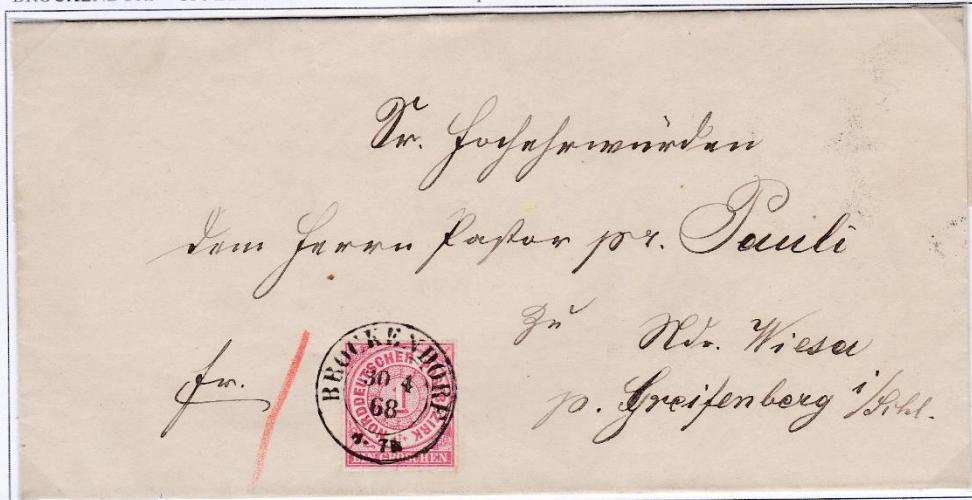 Sr. Hochehrwürden
dem Herrn Pastor pr. Pauli
zu Ndr. Wiesa
p. Greifenberg i/Schl.
fr.
BROCKENDORF
30 4
68
NORDDEUTSCHER POSTBEZIRK
1
EIN GROSCHEN